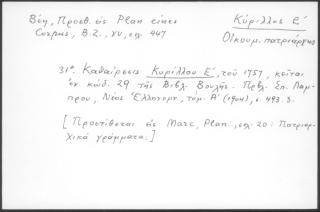 Βέη, Προσθ. εἰς Plan eines
Corpus, B.Z., XV, σελ. 447
Κύριλλος Ε΄
Οἰκουμ. πατριάρχης
31ᵒ. Καθαίρεσις Κυρίλλου Ε΄, τοῦ 1757, κεῖται
ἐν κώδ. 29 τῆς Βιβλ. Βουλῆς. Πρβλ. Σπ. Λάμ-
πρου, Νέος Ἑλληνομν., τόμ. Α΄ (1904), σ. 493. 3.
[Προστίθεται εἰς Marc, Plan..., σελ. 20: Πατριαρ-
χικὰ γράμματα.]